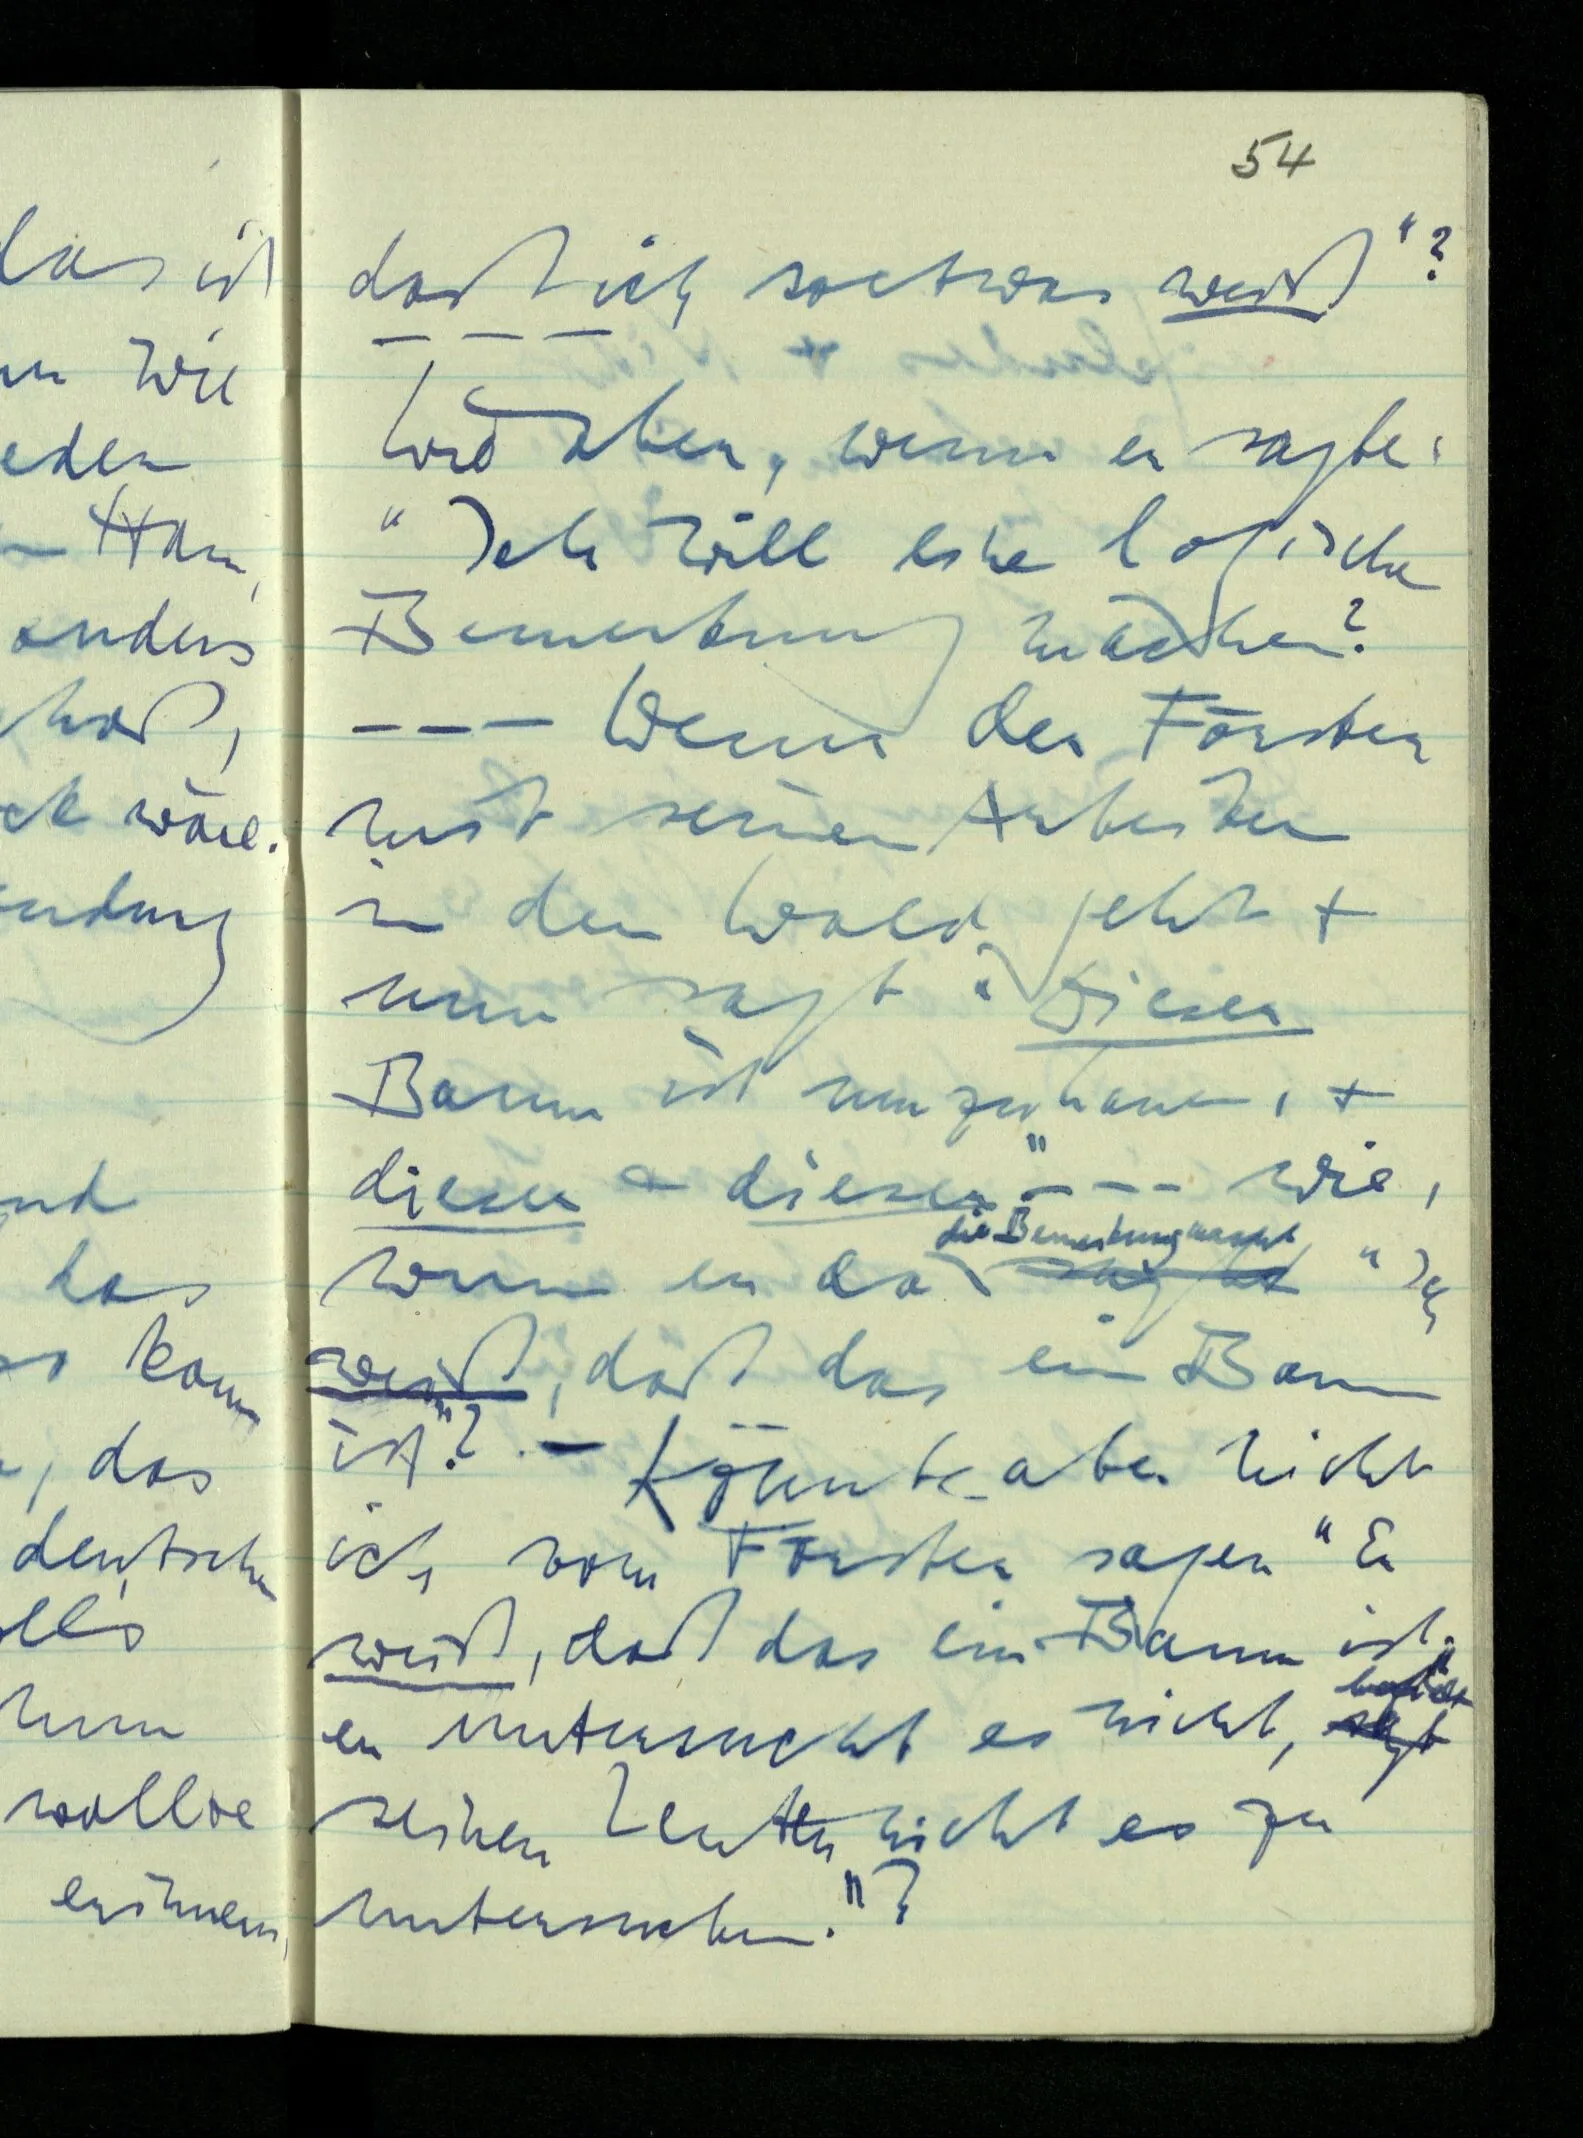 das ist
wie
eden
anders
wäre.
endung
kann
, das
erinnern,
54
daß ich soetwas weiß"?
– – –
Wie aber, wenn er sagte:
"Ich will eine logische
Bemerkung machen?
– – – Wenn der Förster
mit seinen Arbeitern
in den Wald geht +
nun sagt: "Dieser
Baum ist umzuhauen, +
dieser + dieser" – – – wie,
die Bemerkung macht
wenn er da sagt "Ich
weiß, daß das ein Baum
ist"? – Könnte aber nicht
ich vom Förster sagen "Er
weiß, daß das ein Baum ist,
befiehlt
er untersucht es nicht, sagt
seinen Leuten nicht es zu
untersuchen."?